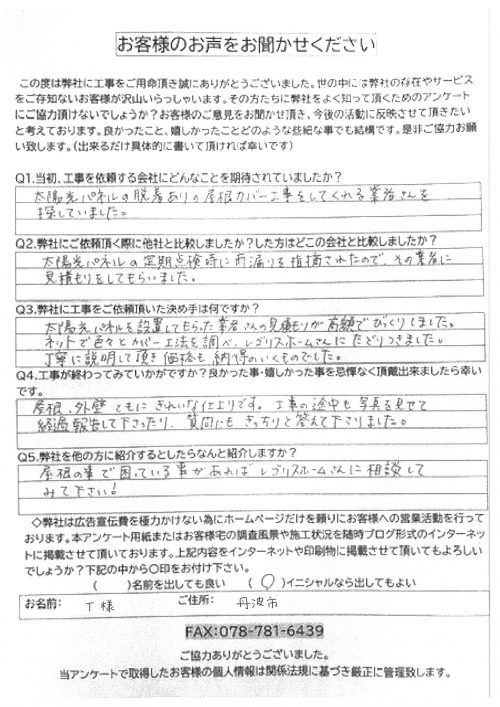 お客様のお声をお聞かせください
この度は弊社に工事をご用命頂き誠にありがとうございました。世の中には弊社の存在やサービス
をご存知ないお客様が沢山いらっしゃいます。その方たちに弊社をよく知って頂くためのアンケート
にご協力頂けないでしょうか？お客様のご意見をお聞かせ頂き、今後の活動に反映させて頂きたい
と考えております。良かったこと、嬉しかったことどのような些細な事でも結構です。是非ご協力お願
い致します。（出来るだけ具体的に書いて頂ければ幸いです）
Q1.当初、工事を依頼する会社にどんなことを期待されていましたか？
太陽光パネルの脱着ありの屋根カバー工事をしてくれる業者さんを
探していました。
Q2.弊社にご依頼頂く際に他社と比較しましたか？した方はどこの会社と比較しましたか？
太陽光パネルの定期点検時に雨漏りを指摘されたので、その業者に
見積もりをしてもらいました。
Q3.弊社に工事をご依頼頂いた決め手は何ですか？
太陽光パネルを設置してもらった業者さんの見積もりが高額でびっくりしました。
ネットで色々とカバー工法を調べ、レゴリスホームさんにたどりつきました。
丁寧に説明して頂き価格も納得のいくものでした。
Q4.工事が終わってみていかがですか？良かった事・嬉しかった事を忌憚なく頂戴出来ましたら幸い
です。
屋根、外壁ともにきれいな仕上りです。工事の途中も写真を見せて
経過報告して下さったり、質問にもきっちりと答えて下さりました。
Q5.弊社を他の方に紹介するとしたらなんと紹介しますか？
屋根の事で困っている事があればレゴリスホームさんに相談して
みて下さい！
◇弊社は広告宣伝費を極力かけない為にホームページだけを頼りにお客様への営業活動を行って
おります。本アンケート用紙またはお客様宅の調査風景や施工状況を随時ブログ形式のインターネッ
トに掲載させて頂いております。上記内容をインターネットや印刷物に掲載させて頂いてもよろしい
でしょうか？下記の中から〇印をお付け下さい。
（　）名前を出しても良い　（〇）イニシャルなら出してもよい
お名前： T様　ご住所： 丹波市
FAX:078-781-6439
ご協力ありがとうございました。
当アンケートで取得したお客様の個人情報は関係法規に基づき厳正に管理致します。